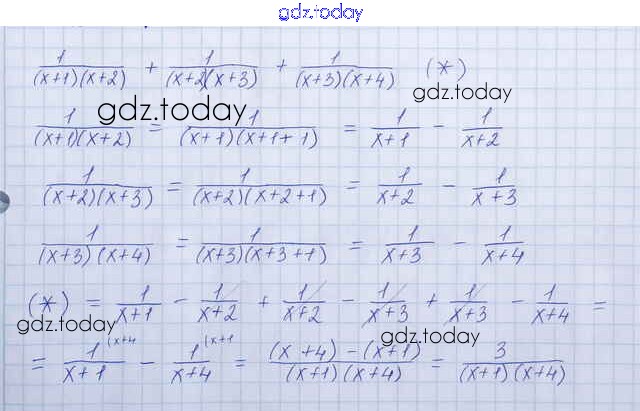 gdz.today
1/((x+1)(x+2)) + 1/((x+2)(x+3)) + 1/((x+3)(x+4)) (*)
gdz.today
1/((x+1)(x+2)) = 1/((x+1)(x+1+1)) = 1/(x+1) - 1/(x+2)
gdz.today
1/((x+2)(x+3)) = 1/((x+2)(x+2+1)) = 1/(x+2) - 1/(x+3)
1/((x+3)(x+4)) = 1/((x+3)(x+3+1)) = 1/(x+3) - 1/(x+4)
(*) = 1/(x+1) - 1/(x+2) + 1/(x+2) - 1/(x+3) + 1/(x+3) - 1/(x+4) =
gdz.today
gdz.today
= 1(x+4/(x+1) - 1(x+1/(x+4) = ((x+4)-(x+1))/((x+1)(x+4)) = 3/((x+1)(x+4))